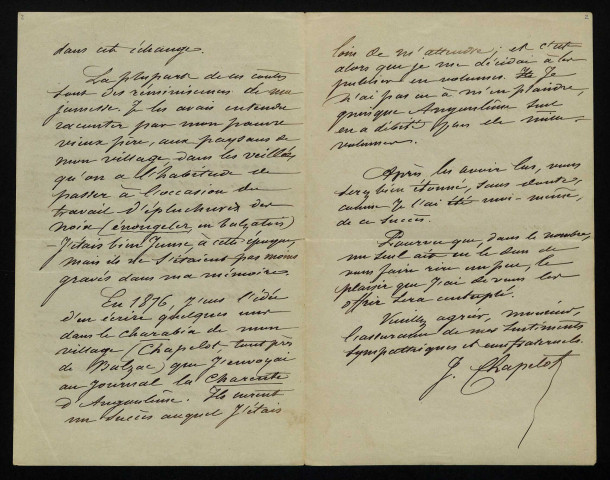 dans cet échange.
La plupart de ces contes
sont des réminiscences de ma
jeunesse. Je les avais entendu
raconter par mon pauvre
vieux père, aux paysans de
mon village, dans les veillées
qu'on a l'habitude de
passer à l'occasion du
travail d'épluchures des
noix (énougeler en balzatois)
J'étais bien jeune, à cette époque,
mais ils ne s'étaient pas moins
gravés dans ma mémoire.
En 1876, j'eus l'idée
d'en écrire quelques uns
dans le charabia de mon
village (Chapelot tout près
de Balzac) que j'envoyai
au journal la Charente
d'Angoulême. Ils eurent
un succès auquel j'étais
loin de m'attendre; et c'est
alors que je me décidai à les
publier en volumes. Je
n'ai pas eu à m'en plaindre,
puisque Angoulême seul
en a débité pas de
volumes.
Après les avoir lus, vous
serez bien étonné, sans doute,
comme je l'ai été moi-même,
de ce succès.
Pourvu que, dans le nombre,
un seul ait eu le don de
vous faire rire un peu, le
plaisir que j'ai de vous les
offrir sera centuplé.
Veuillez agréer, monsieur,
l'assurance de mes sentiments
sympathiques et confraternels.
J. Chapelot